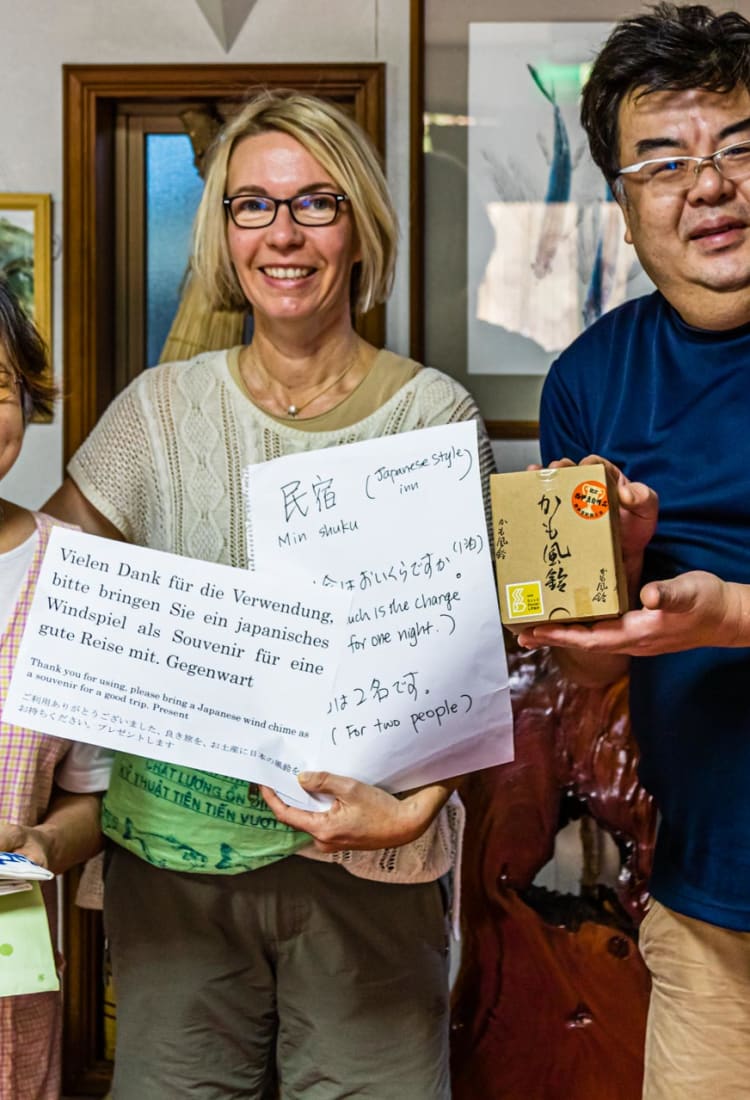 民宿 (Japanese style
inn)
Min shuku
はおいくらですか (1泊)。
uch is the charge
for one night.)
は2名です。
(For two people)
Vielen Dank für die Verwendung,
bitte bringen Sie ein japanisches
Windspiel als Souvenir für eine
gute Reise mit. Gegenwart
Thank you for using, please bring a Japanese wind chime as
a souvenir for a good trip. Present
ご利用ありがとうございました、良き旅を、お土産に日本の風鈴を
お持ちください。プレゼントします
かも風鈴
かも風鈴
かも風鈴
CHẤT LƯỢNG ỔN
KỸ THUẬT TIÊN TIẾN VƯỢT